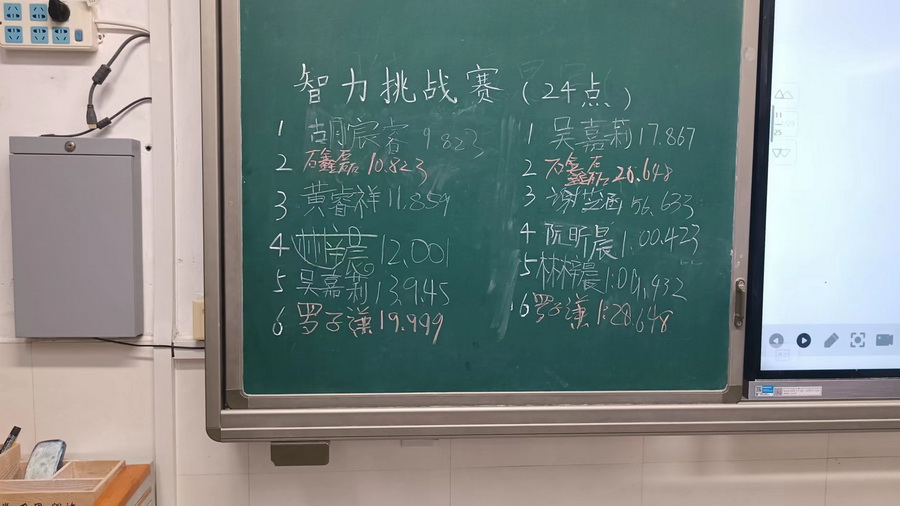 智力挑战赛（24点）
1 胡宸睿 9.823
2 石鑫磊 10.823
3 黄睿祥 11.859
4 林梓晨 12.001
5 吴嘉莉 13.945
6 罗子谦 19.999
1 吴嘉莉 17.867
2 石鑫磊 20.648
3 谢芝涵 56.633
4 阮昕晨 1:00.423
5 林梓晨
6 罗子谦 1:28.648